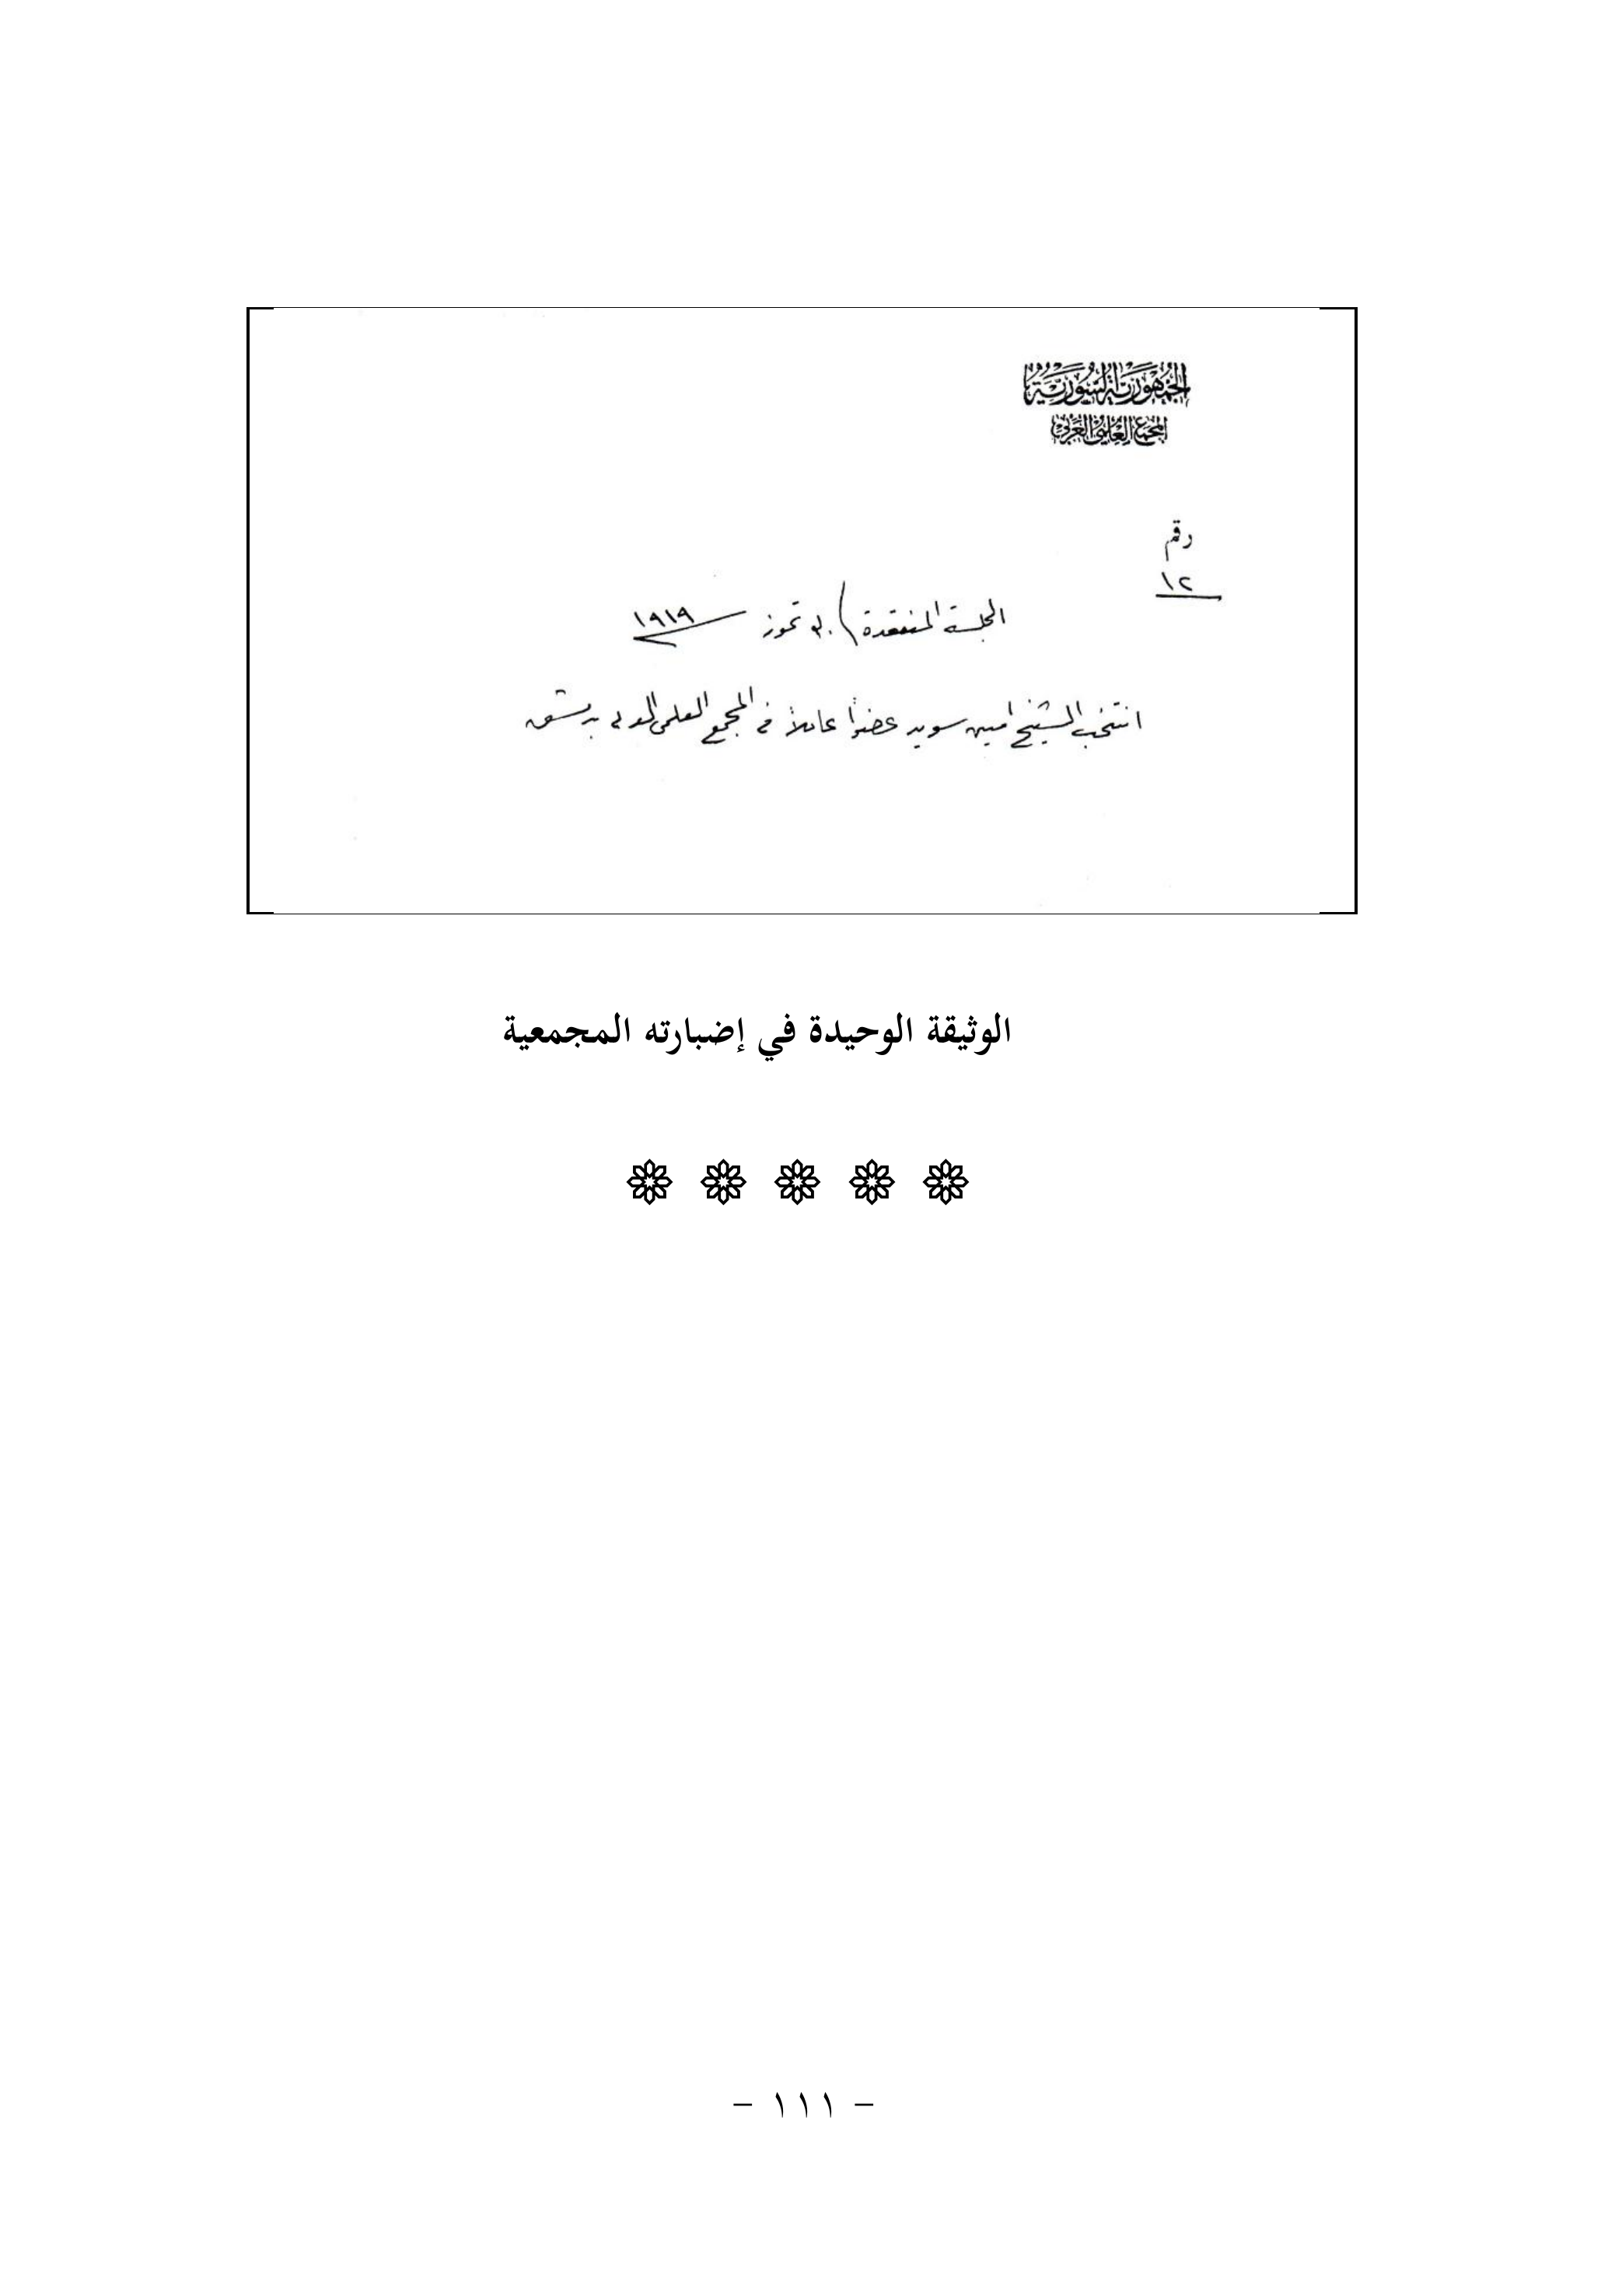 الجمهورية السورية
المجمع العلمي العربي
رقم
١٢
الجلسة المنعقدة تموز ١٩١٩
انتخب الشيخ امين سويد عضواً عاملاً في المجمع العلمي العربي بدمشق
الوثيقة الوحيدة في إضبارته المجمعية
- ١١١ -